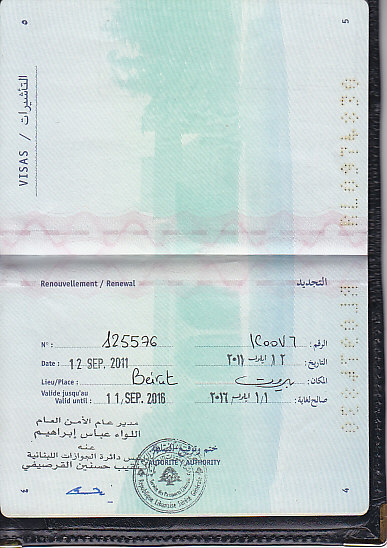 ٥
5
VISAS / التأشيرات
Renouvellement / Renewal
التجديد
N° : 125576
الرقم : ١٢٥٥٧٦
Date : 12 SEP. 2011
التاريخ : ١٢ ايلول ٢٠١١
Lieu/Place : Beirut
المكان : بيروت
Valide jusqu'au
Valid until : 11 SEP. 2016
صالح لغاية : ١١ ايلول ٢٠١٦
مدير عام الأمن العام
اللواء عباس إبراهيم
عنه
رئيس دائرة الجوازات اللبنانية
نقيب حسنين القرصيفي
ختم وتوقيع
AUTORITE / AUTHORITY
République Libanaise
٤
4